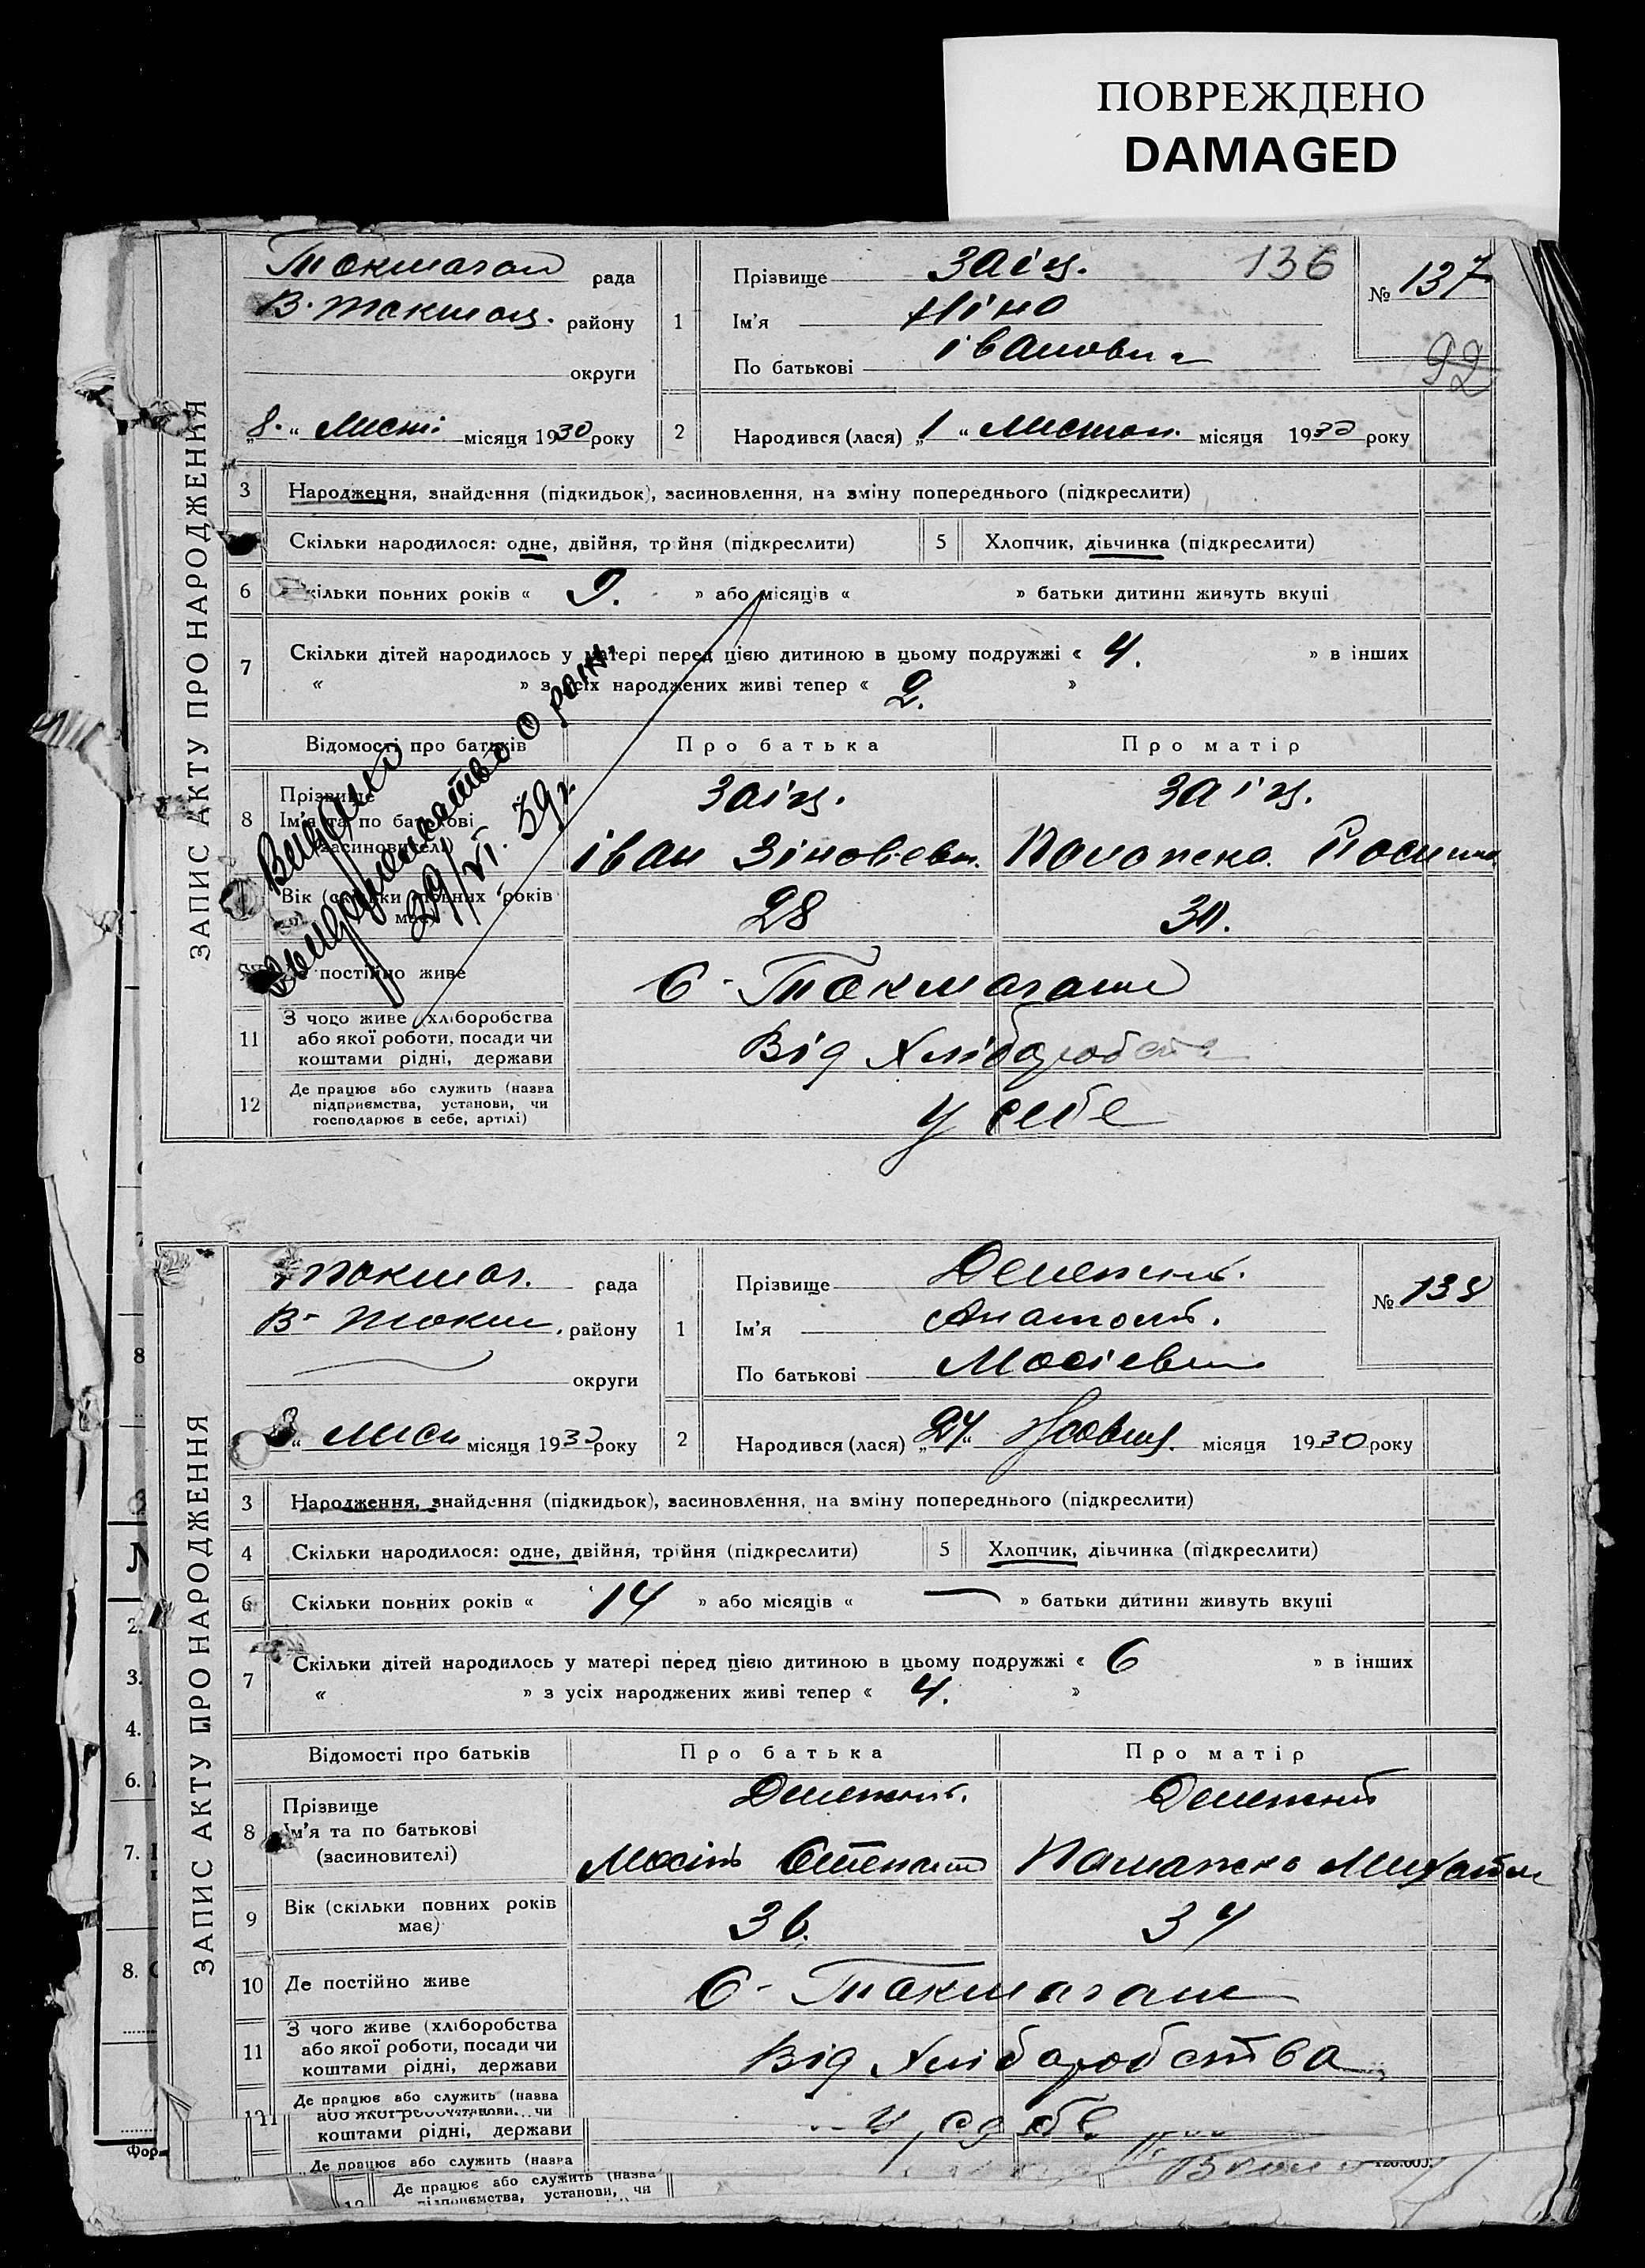 ПОВРЕЖДЕНО
DAMAGED
ЗАПИС АКТУ ПРО НАРОДЖЕННЯ
Токмаган рада
В. Токмац. району
округи
"8." Лист: місяця 1930 року
1 Прізвище Заіц. 136
Ім'я Ніно
По батькові Іванович
№ 137
92
2 Народився (лася) "1" Листоп. місяця 1930 року
3 Народження, знайдення (підкидьок), засиновлення, на зміну попереднього (підкреслити)
Скільки народилося: одне, двійня, трійня (підкреслити) 5 Хлопчик, дівчинка (підкреслити)
6 Скільки повних років « 9. » або місяців « » батьки дитини живуть вкупі
7 Скільки дітей народилось у матері перед цією дитиною в цьому подружжі « 4. » в інших
« » з усіх народжених живі тепер « 2. »
Відомості про батьків Про батька Про матір
8 Прізвище Заіц. Заіц.
Ім'я та по батькові
(засиновителі) Іван Зіновієв.
Вік (скільки повних років має) 28 30.
постійно живе С - Токмагани
11 З чого живе (хліборобства
або якої роботи, посади чи Від Хліборобств
коштами рідні, держави
12 Де працює або служить (назва
підприємства, установи, чи У себе
господарює в себе, артілі)
Видано
свидоцтво о рожн.
29/VI. 39 г.
ЗАПИС АКТУ ПРО НАРОДЖЕННЯ
Токмаг. рада
В - Токм. району
округи
" Лист місяця 1930 року
1 Прізвище
Ім'я Анатолій.
По батькові Мосієвич
№ 138
2 Народився (лася) "24" Жовтц. місяця 1930 року
3 Народження, знайдення (підкидьок), засиновлення, на зміну попереднього (підкреслити)
4 Скільки народилося: одне, двійня, трійня (підкреслити) 5 Хлопчик, дівчинка (підкреслити)
6 Скільки повних років « 14 » або місяців « — » батьки дитини живуть вкупі
7 Скільки дітей народилось у матері перед цією дитиною в цьому подружжі « 6 » в інших
« » з усіх народжених живі тепер « 4. »
Відомості про батьків Про батька Про матір
8 Прізвище
Ім'я та по батькові
(засиновителі) Мосій Степан Палажка Михайл
9 Вік (скільки повних років 36. 34
має)
10 Де постійно живе С - Токмагани
11 З чого живе (хліборобства
або якої роботи, посади чи Від Хліборобства
коштами рідні, держави
Де працює або служить (назва
коштами рідні, держави
Де працює або служить (назва
Де працює або служить (назва
підприємства, установи, чи